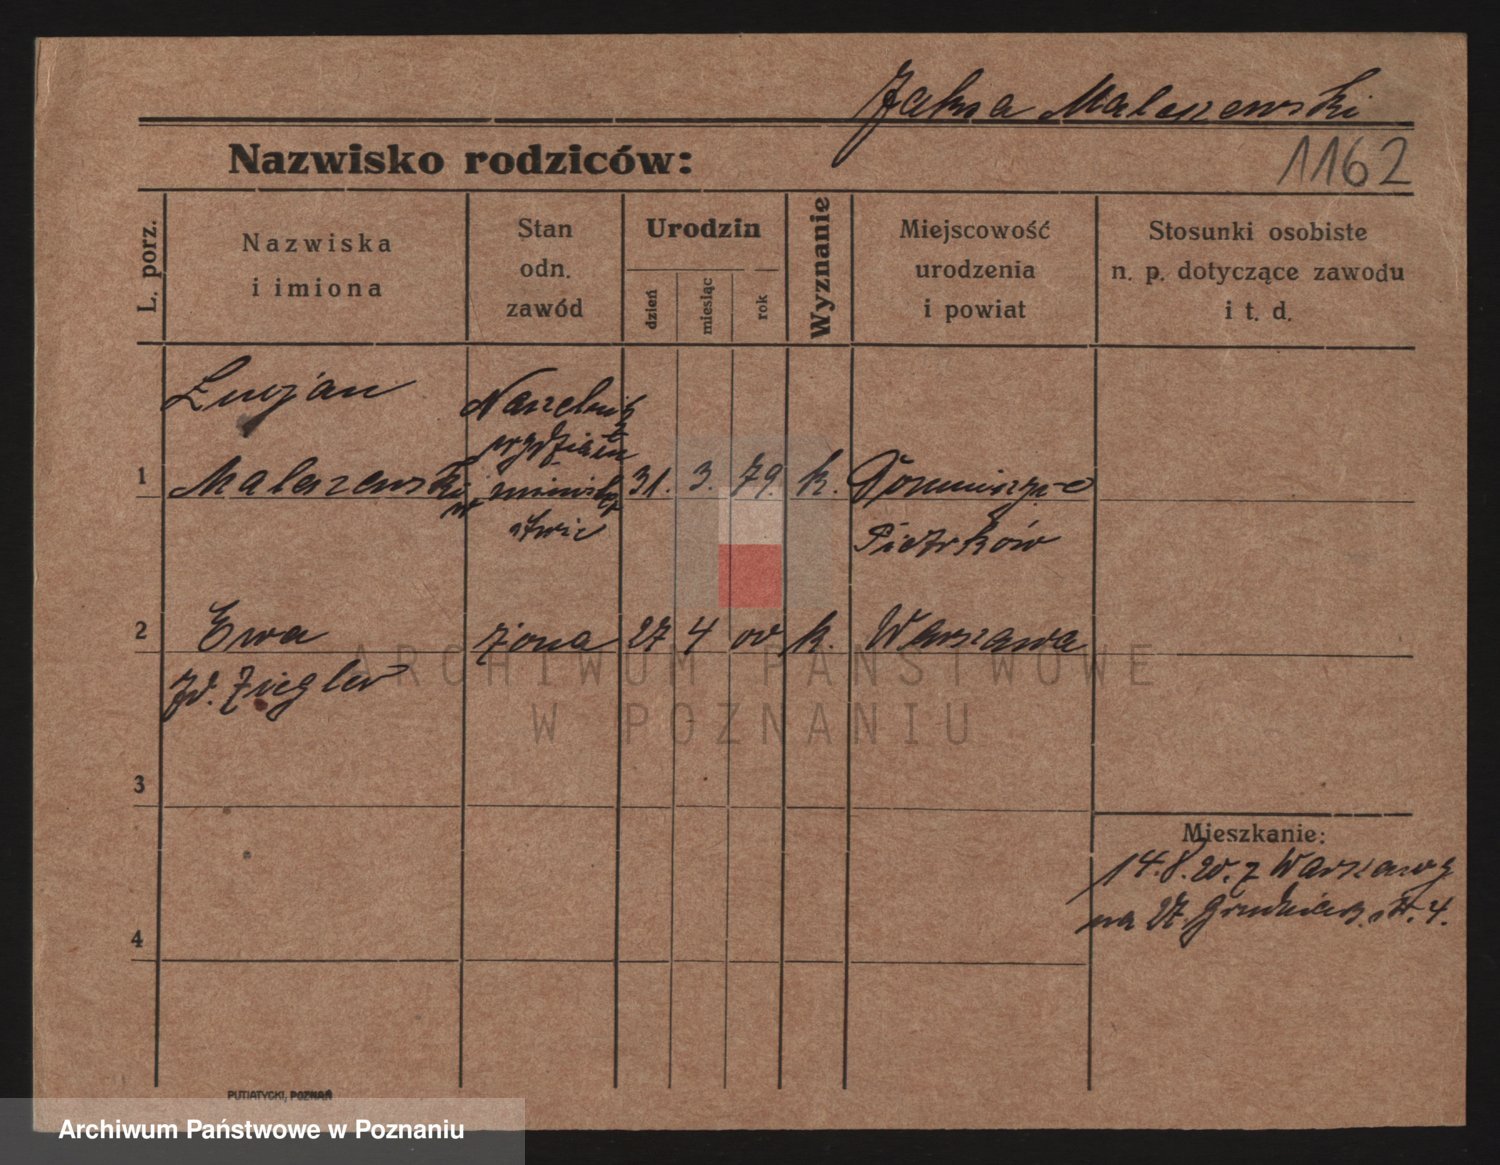 Jaksa Malaszewski
Nazwisko rodziców:
1162
L. porz.
Nazwiska
i imiona
Stan
odn.
zawód
Urodzin
dzień
miesiąc
rok
Wyznanie
Miejscowość
urodzenia
i powiat
Stosunki osobiste
n. p. dotyczące zawodu
i t. d.
Lucjan
Naczelnik
wydziału
1
Malaszewski
w minister
stwie
31. 3. 79. k.
Piotrków
2
Ewa
żona
27 4 00 k. Warszawa
zd. Ziegler
ARCHIWUM PAŃSTWOWE
W POZNANIU
3
Mieszkanie:
14.8.20. z Warszawy
na 27 Grudnia 4.
4
PUTIATYCKI, POZNAŃ
Archiwum Państwowe w Poznaniu